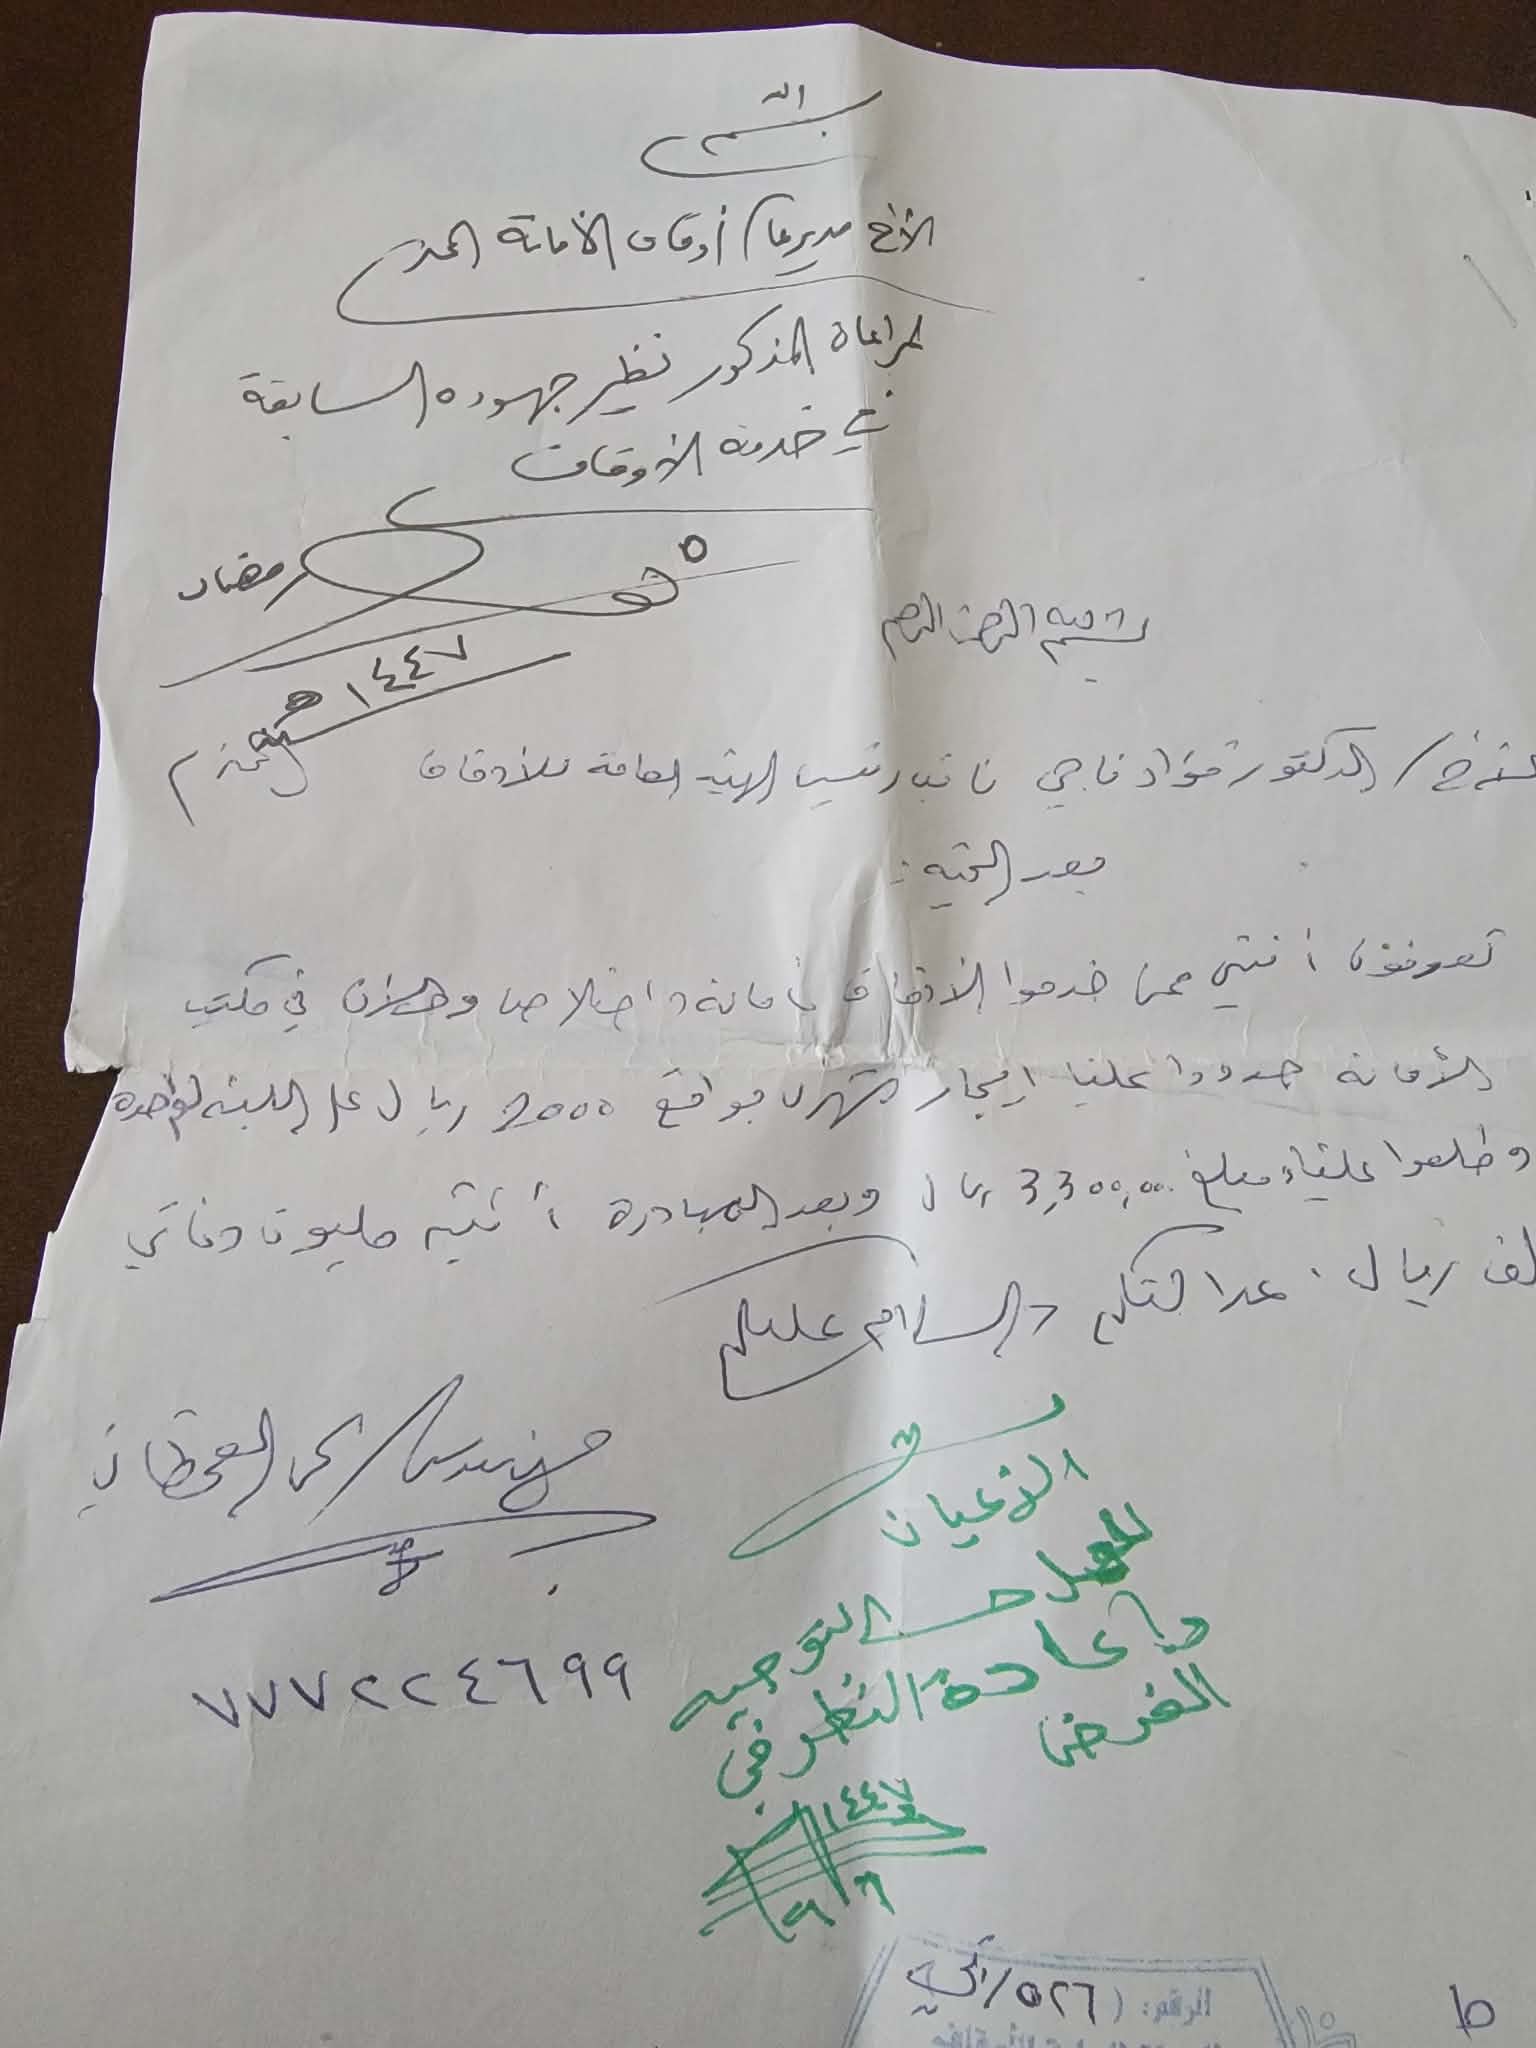 بسم الله
الأخ مدير عام أوقاف الأمانة المحترم
لمراعاة المذكور نظير جهوده السابقة
في خدمة الأوقاف
٥ رمضان
١٤٤٧ هـ
بسم الله الرحمن الرحيم
الأخ / الدكتور فؤاد ناجي نائب رئيس الهيئة العامة للأوقاف المحترم
بعد التحية :
تعرفون أنني ممن خدموا الأوقاف بأمانة وإخلاص والآن في مكتب
الأمانة حددوا علينا إيجار شهري بواقع 2000 ريال على اللبنة الواحدة
وطلعوا علينا مبلغ 3,300,000 ريال وبعد المبادرة مليون ومائتي
ألف ريال . والسلام عليكم
مهندس / القحطاني
٧٧٧٢٢٤٦٩٩
الله
الأعيان
للعمل حسب التوجيه
وإعادة النظر في
الفرض
١٤٤٧
٩/٦
الرقم: (٥٢٦/
b